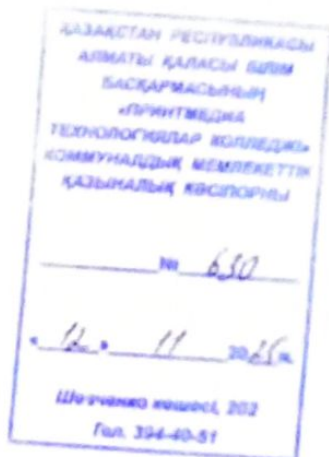 ҚАЗАҚСТАН РЕСПУБЛИКАСЫ
АЛМАТЫ ҚАЛАСЫ БІЛІМ
БАСҚАРМАСЫНЫҢ
«ПРИНТМЕДИА
ТЕХНОЛОГИЯЛАР КОЛЛЕДЖІ»
КОММУНАЛДЫҚ МЕМЛЕКЕТТІК
ҚАЗЫНАЛЫҚ КӘСІПОРНЫ
№ 630
« 12 » 11 2025 ж.
Шевченко көшесі, 202
Тел. 394-40-51